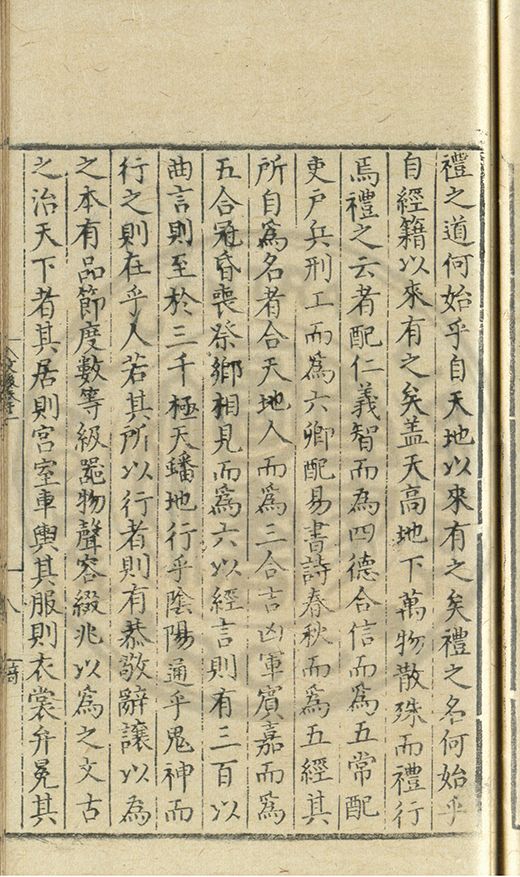 禮之道何始乎自天地以來有之矣禮之名何始乎
自經籍以來有之矣盖天高地下萬物散殊而禮行
焉禮之云者配仁義智而為四德合信而爲五常配
吏戶兵刑工而爲六卿配易書詩春秋而爲五經其
所自爲名者合天地人而爲三合吉凶軍賓嘉而爲
五合冠昏喪祭鄉相見而爲六以經言則有三百以
曲言則至於三千極天蟠地行乎陰陽通乎鬼神而
行之則在乎人若其所以行者則有恭敬辭讓以為
之本有品節度數等級器物聲容綴兆以爲之文古
之治天下者其居則宮室車輿其服則衣裳弁冕其